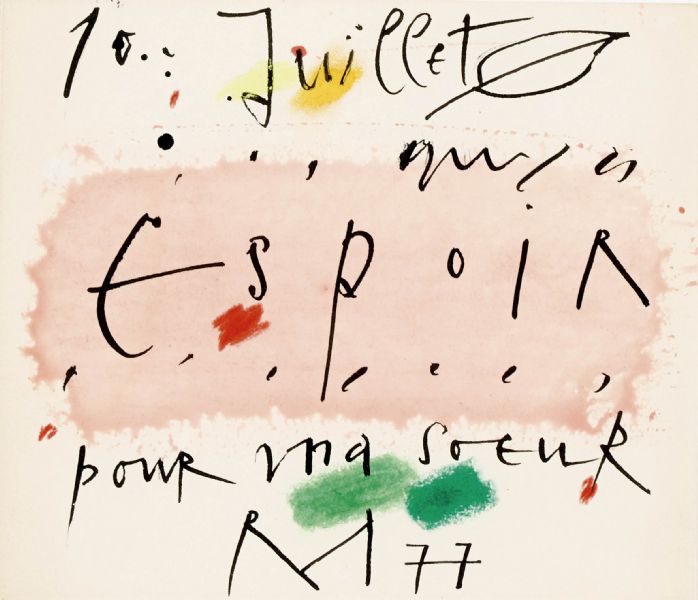 10. Juillet
Espoir
pour ma soeur
M 77